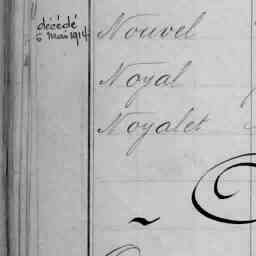 décédé
6 mai 1914
Nouvel
Noyal
Noyalet